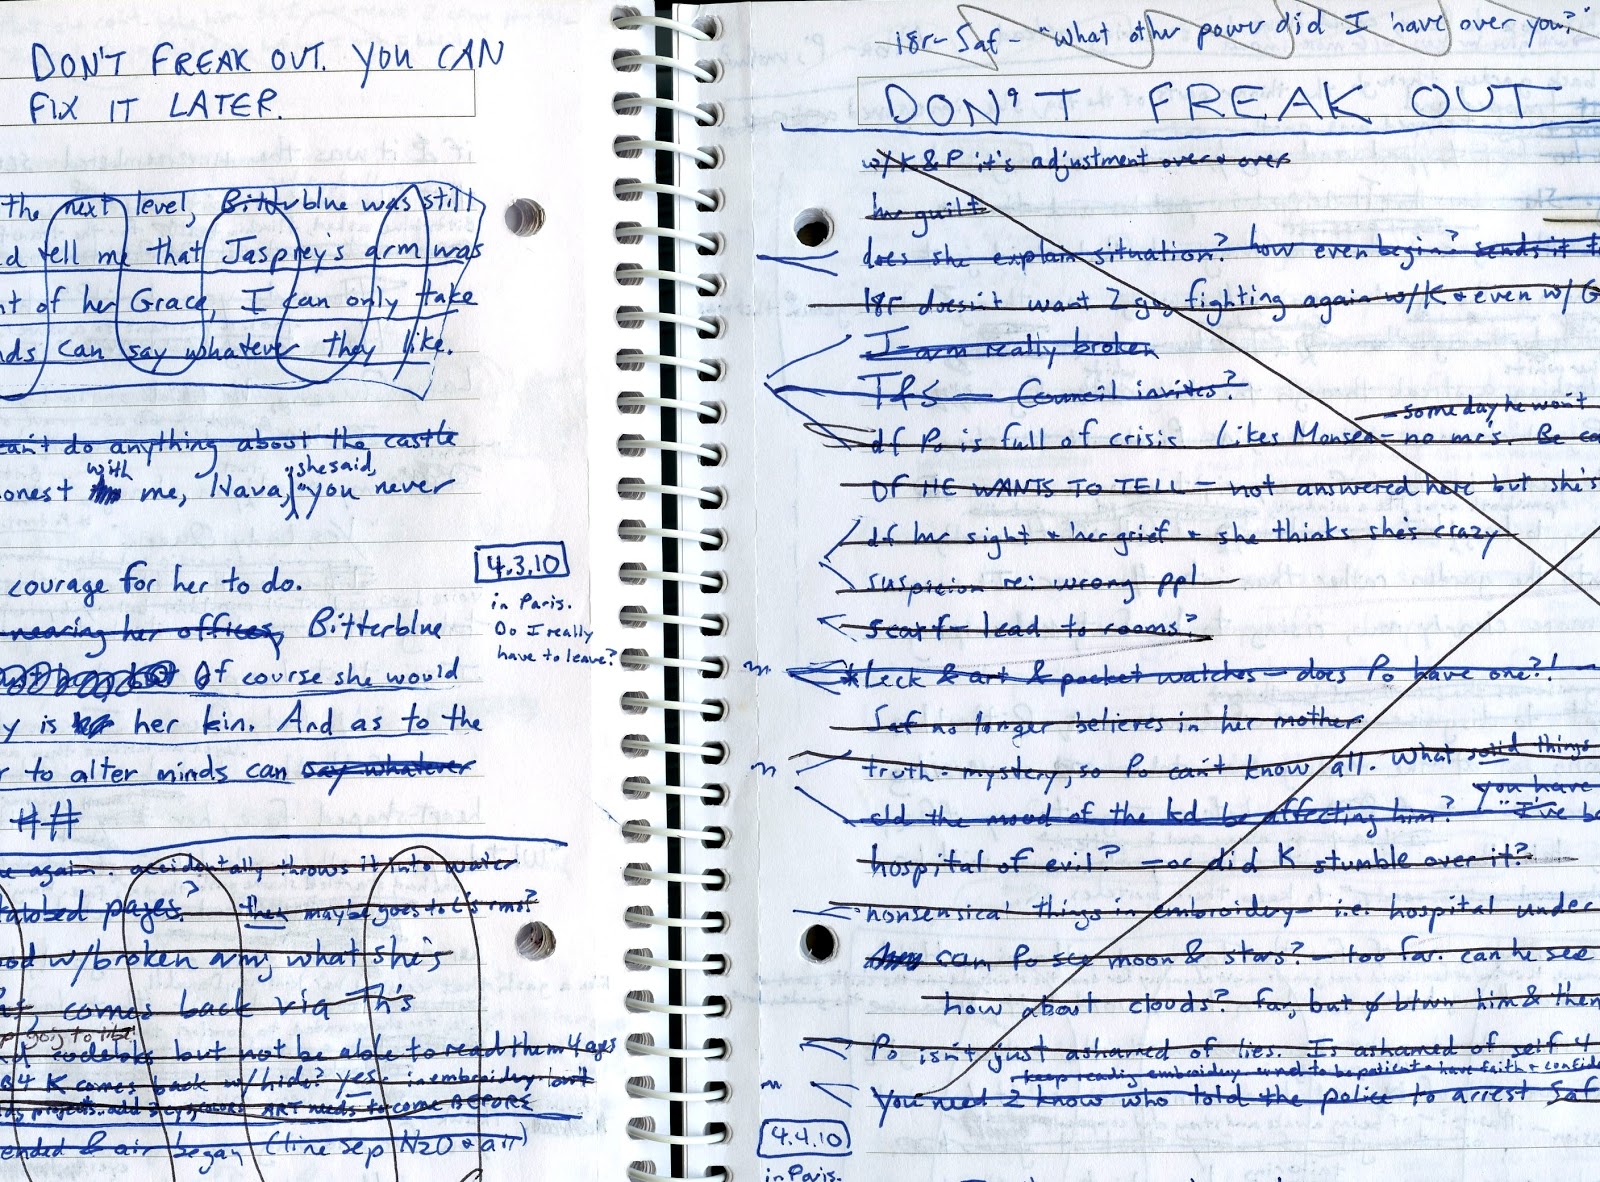 DON'T FREAK OUT. YOU CAN
FIX IT LATER.
the next level, Bitterblue was still
d tell me that Jasprey's arm was
nt of her Grace, I can only take
nds can say whatever they like.
can't do anything about the castle
with she said,
onest me, Nava, "you never
courage for her to do.
4.3.10
in Paris.
Do I really
have to leave?
nearing her offices, Bitterblue
Of course she would
y is her kin. And as to the
r to alter minds can say whatever
##
again. accidentally throws it into water
pages? then maybe goes to L's rms?
od w/broken arm, what she's
comes back via Th's
going to
but not be able to read them 4 ages
B4 K comes back w/hide? yes. in embroidery
ART needs to come BEFORE
ended & air began (line sep N2O & air)
18r- Saf - "What other power did I have over you?"
DON'T FREAK OUT
w/K & P it's adjustment over & over
hr guilt
does she explain situation? how even begin? sends it
18r doesn't want 2 go fighting again w/K & even w/G
J- arm really broken
TFS — Council invites?
- some day he won't
df Po is full of crisis Likes Monsea - no mr's. Be
DF HE WANTS TO TELL - not answered here but she's
df hr sight & her grief & she thinks she's crazy
suspicion re: wrong ppl
scarf - lead to rooms?
*Leck & art & pocket watches - does Po have one?!
Saf no longer believes in her mother
truth - mystery, so Po can't know all. What solid things
you have
cld the mood of the kd be affecting him? "I've
hospital of evil? - or did K stumble over it?
nonsensical things in embroidery - i.e. hospital under
can Po see moon & stars? - too far. can he see
how about clouds? far, but ∅ btwn him & them
Po isn't just ashamed of lies. Is ashamed of self 4
keep reading embroidery to be patient & have faith &
You need 2 know who told the police to arrest Saf
4.4.10
in Paris.